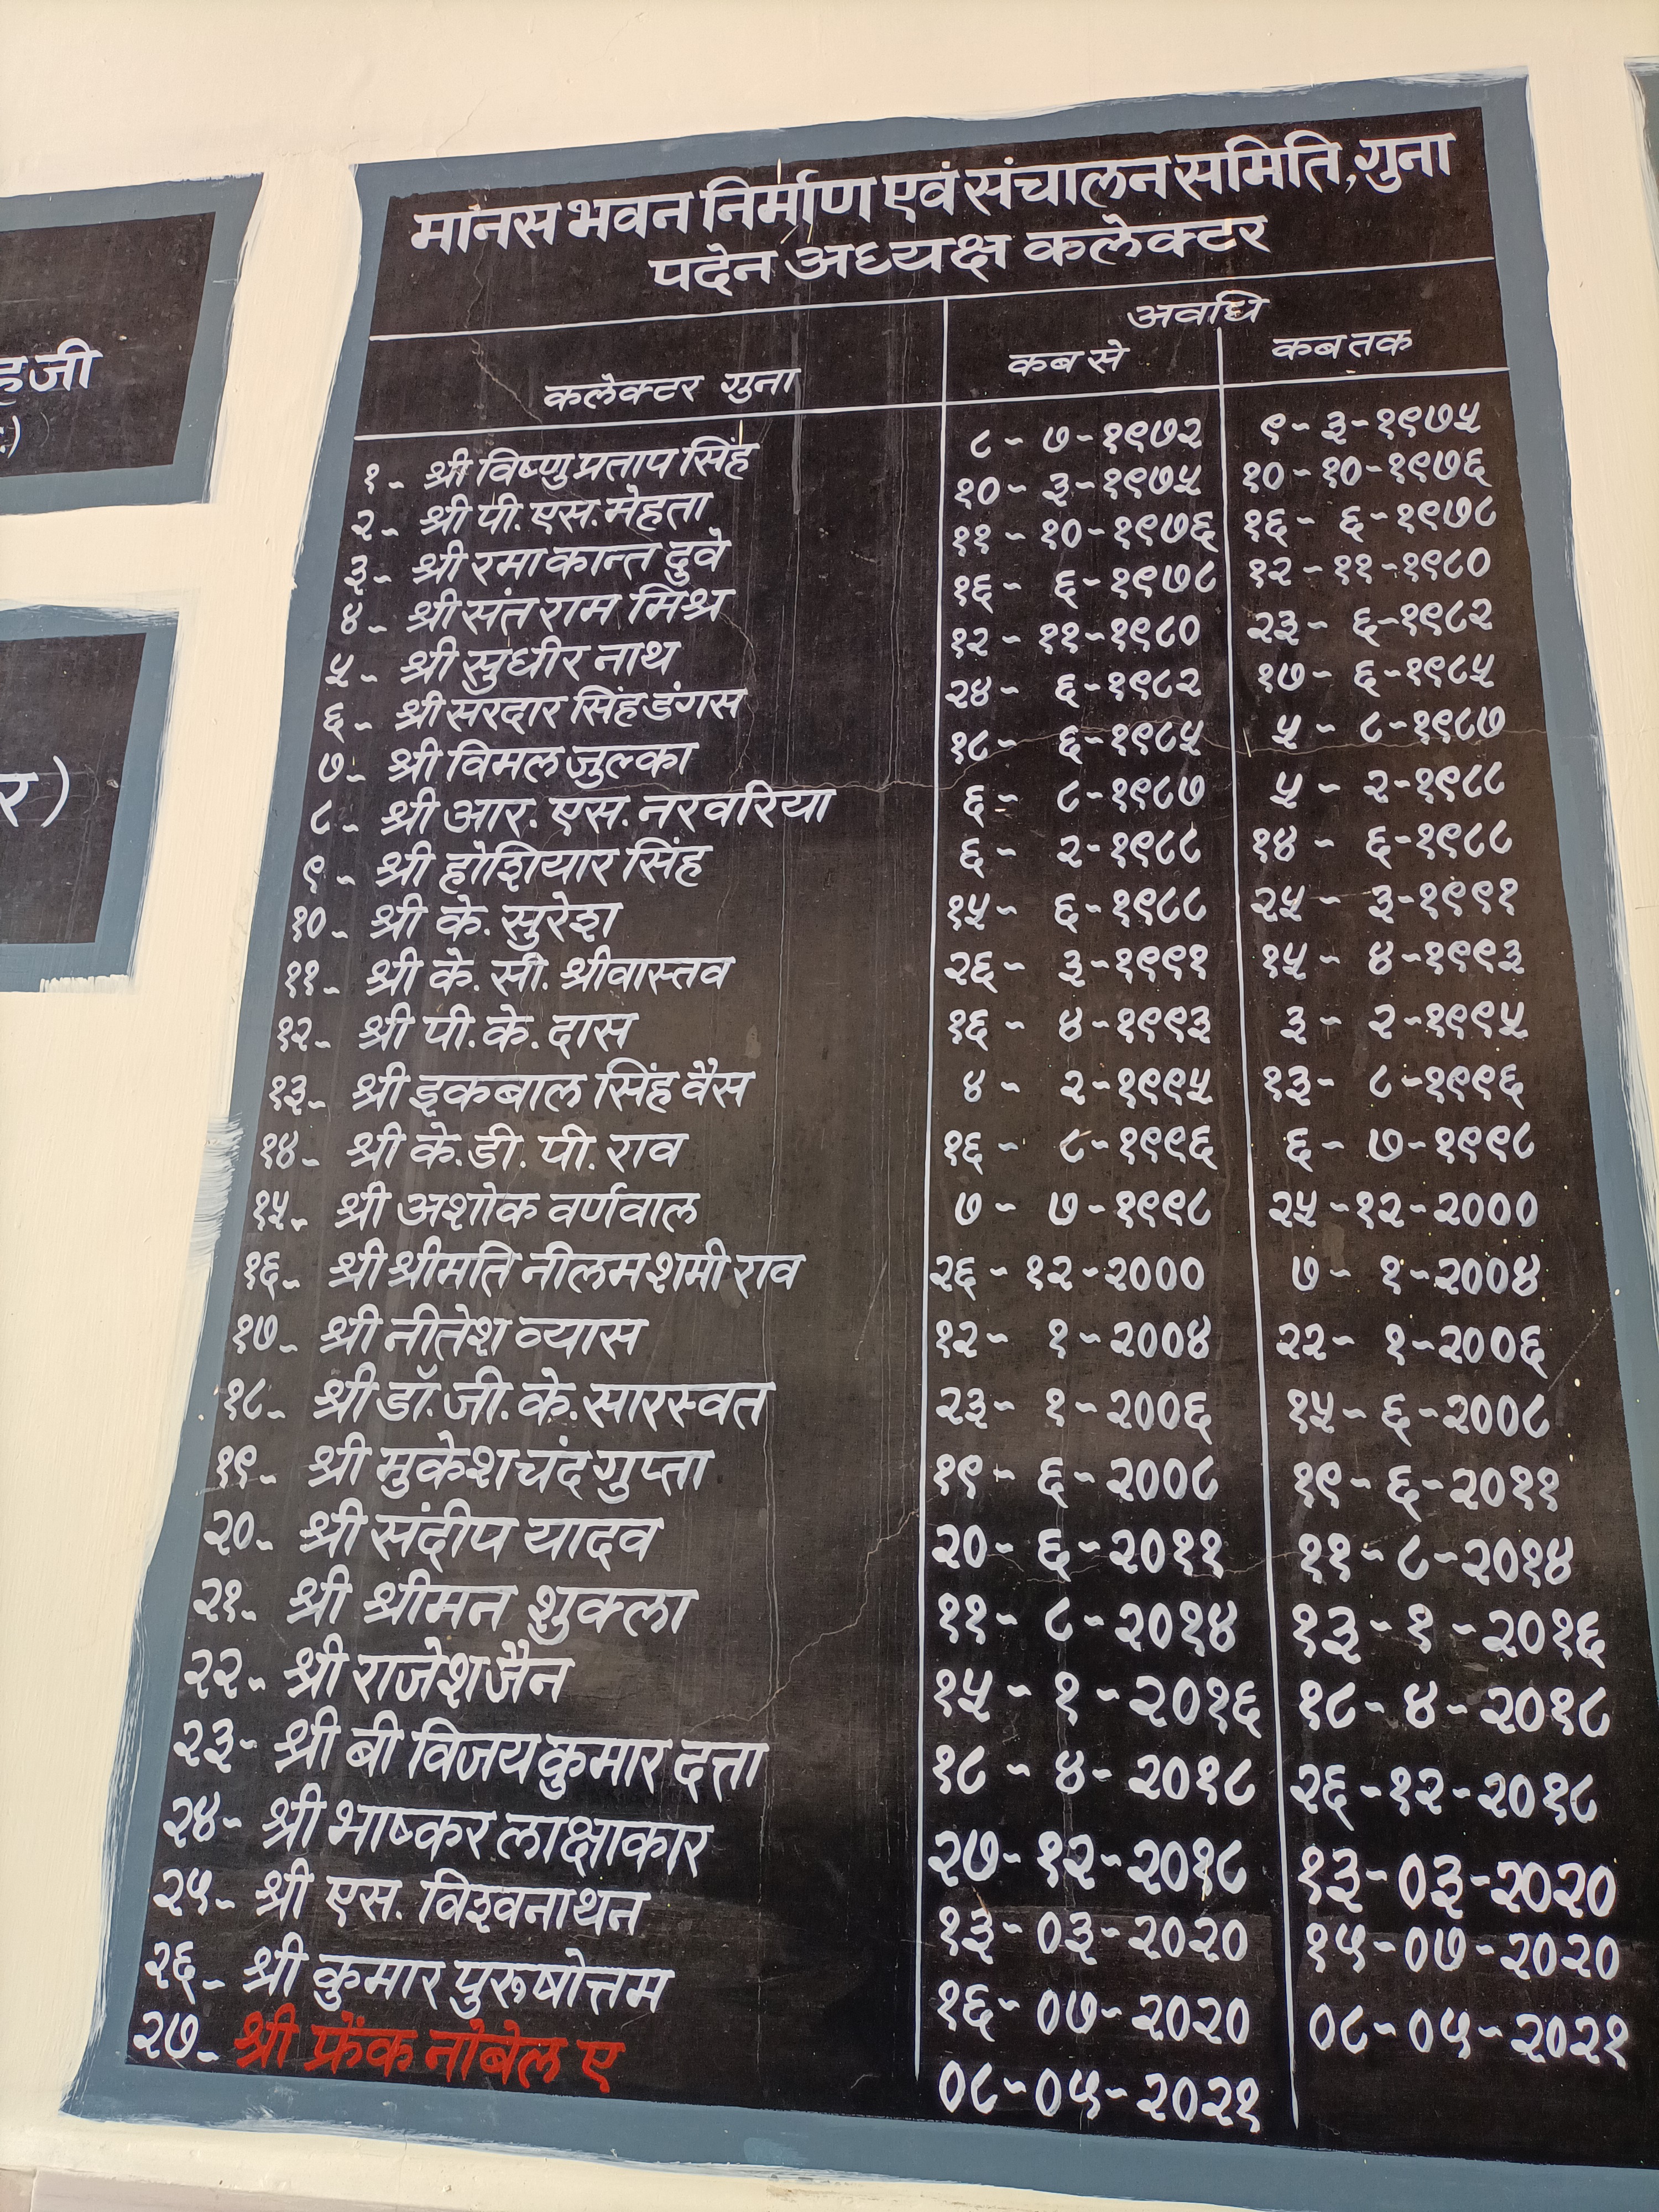 हजी
र)
मानस भवन निर्माण एवं संचालन समिति, गुना
पदेन अध्यक्ष कलेक्टर
अवधि
कलेक्टर गुना कब से कब तक
१- श्री विष्णु प्रताप सिंह ८-७-१९७२ ९-३-१९७५
२- श्री पी. एस. मेहता १०-३-१९७५ १०-१०-१९७६
३- श्री रमाकान्त दुवे ११-१०-१९७६ १६-६-१९७८
४- श्री संत राम मिश्र १६-६-१९७८ १२-११-१९८०
५- श्री सुधीर नाथ १२-११-१९८० २३-६-१९८२
६- श्री सरदार सिंह डंगस २४-६-१९८२ १७-६-१९८५
७- श्री विमल जुल्का १८-६-१९८५ ५-८-१९८७
८- श्री आर. एस. नरवरिया ६-८-१९८७ ५-२-१९८८
९- श्री होशियार सिंह ६-२-१९८८ १४-६-१९८८
१०- श्री के. सुरेश १५-६-१९८८ २५-३-१९९१
११- श्री के. सी. श्रीवास्तव २६-३-१९९१ १५-४-१९९३
१२- श्री पी. के. दास १६-४-१९९३ ३-२-१९९५
१३- श्री इकबाल सिंह वैस ४-२-१९९५ १३-८-१९९६
१४- श्री के. डी. पी. राव १६-८-१९९६ ६-७-१९९८
१५- श्री अशोक वर्णवाल ७-७-१९९८ २५-१२-२०००
१६- श्री श्रीमति नीलम शमी राव २६-१२-२००० ७-१-२००४
१७- श्री नीतेश व्यास १२-१-२००४ २२-१-२००६
१८- श्री डॉ. जी. के. सारस्वत २३-१-२००६ १५-६-२००८
१९- श्री मुकेश चंद गुप्ता १९-६-२००८ १९-६-२०११
२०- श्री संदीप यादव २०-६-२०११ ११-८-२०१४
२१- श्री श्रीमन शुक्ला ११-८-२०१४ १३-१-२०१६
२२- श्री राजेश जैन १५-१-२०१६ १८-४-२०१८
२३- श्री बी विजय कुमार दत्ता १८-४-२०१८ २६-१२-२०१८
२४- श्री भाष्कर लाक्षाकार २७-१२-२०१८ १३-०३-२०२०
२५- श्री एस. विश्वनाथन १३-०३-२०२० १५-०७-२०२०
२६- श्री कुमार पुरूषोत्तम १६-०७-२०२० ०८-०५-२०२१
२७- श्री फ्रेंक नोबेल ए ०८-०५-२०२१